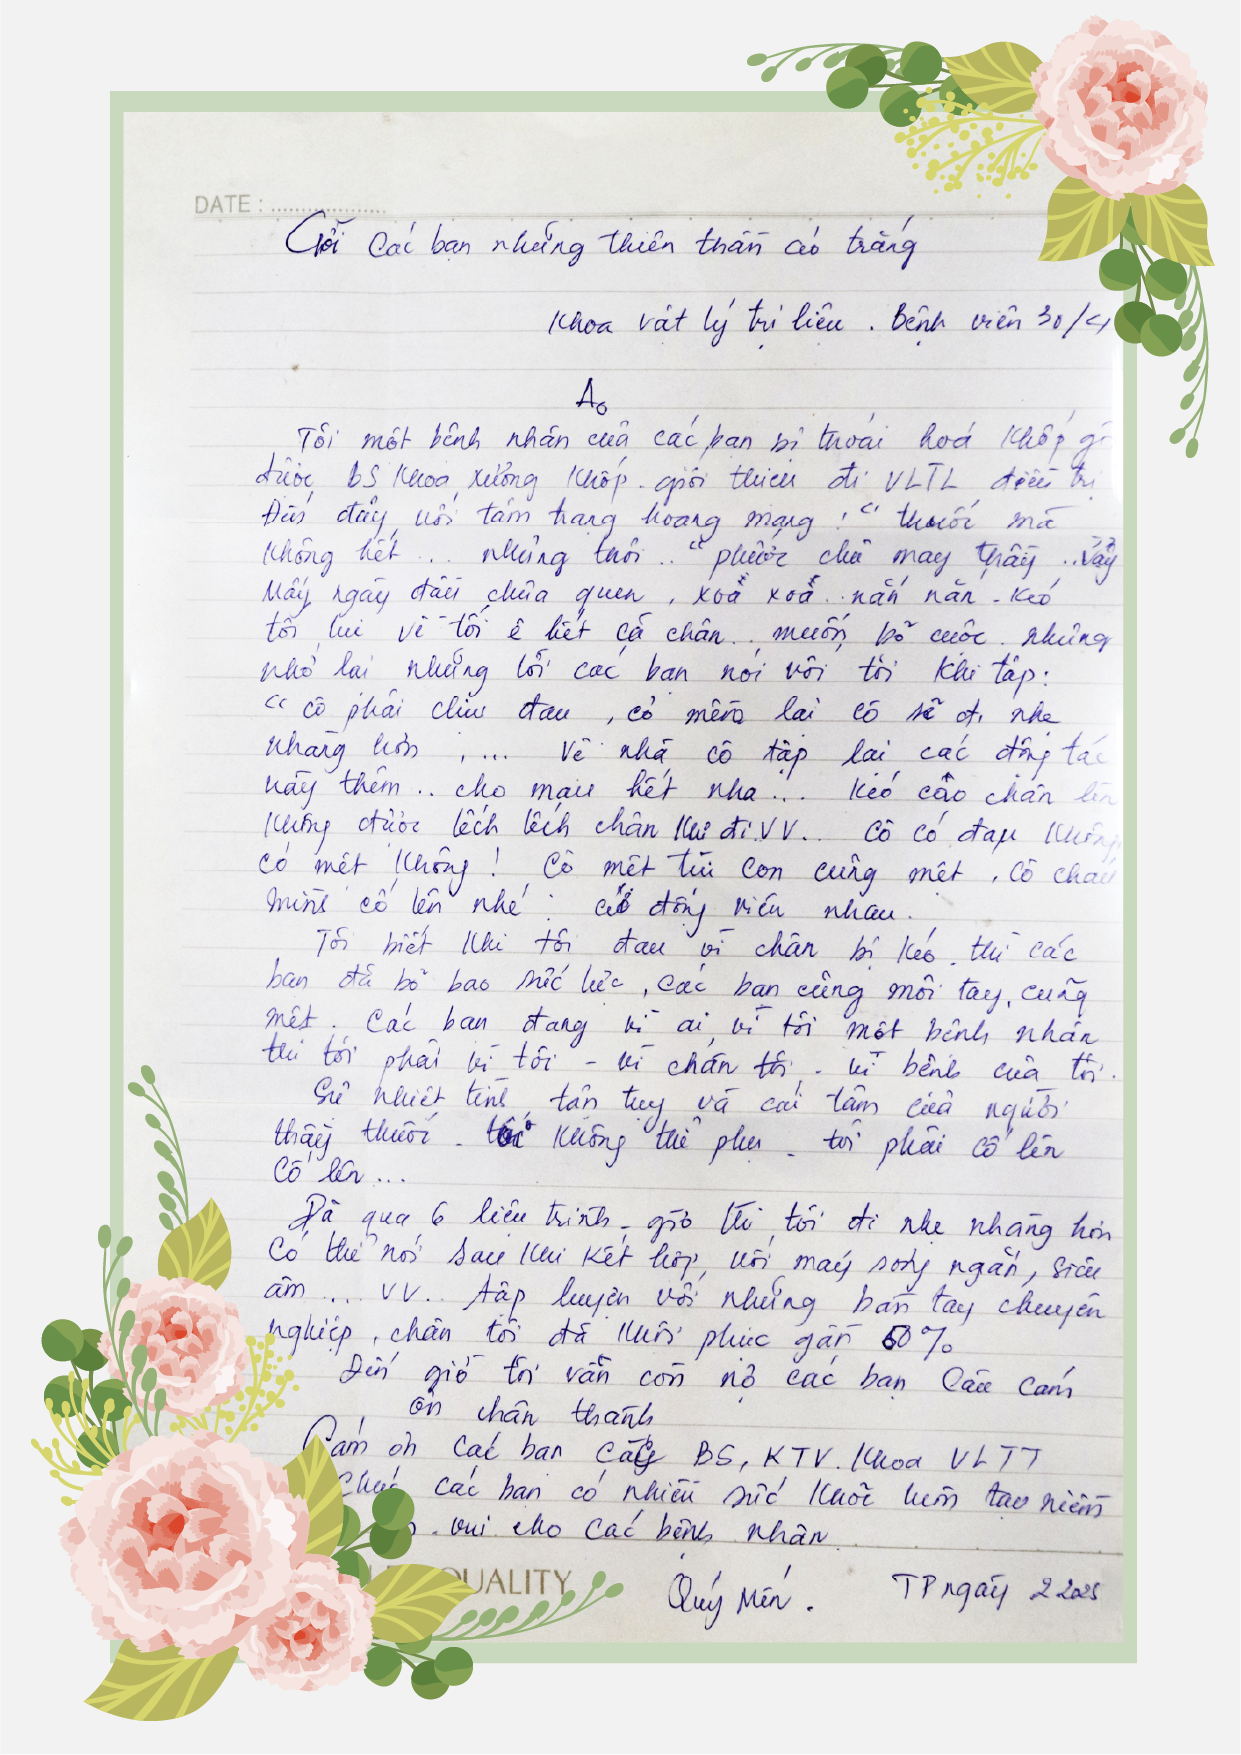 DATE : ...................
Gởi các bạn những thiên thần áo trắng
Khoa vật lý trị liệu . Bệnh viện 30/4
Tôi một bệnh nhân của các bạn bị thoái hoá khớp
được BS Khoa xương khớp giới thiệu đi VLTL điều trị
Đến đây với tâm trạng hoang mang ! " thuốc mà
không hết ... nhưng thôi .. " phước chủ may thầy .. Vậy
Mấy ngày đầu chưa quen , xoa xoa .. nắn nắn - kéo
tới lui về tối ê hết cả chân .. muốn bỏ cuộc . nhưng
nhớ lại những lời các bạn nói với tôi khi tập :
" cô phải chịu đau , cổ mềm lại cô sẽ đi nhẹ
nhàng hơn , ... Về nhà cô tập lại các động tác
này thêm .. cho mau hết nha ... Kéo cao chân lên
không được lệch lệch chân khi đi VV .. Cô có đau không
có mệt không ! Cô mệt tụi con cũng mệt , cô cháu
mình cố lên nhé : động viên nhau .
Tôi biết khi tôi đau vì chân bị kéo . thì các
bạn đã bỏ bao sức lực , các bạn cũng mỏi tay , cũng
mệt . Các bạn đang vì ai , vì tôi một bệnh nhân
thì tôi phải vì tôi - vì chân tôi - vì bệnh của tôi .
Sự nhiệt tình tận tụy và cái tâm của người
thầy thuốc - không thể phụ - tôi phải cố lên
Cố lên ...
Đã qua 6 liệu trình - giờ thì tôi đi nhẹ nhàng hơn
Có thể nói sau khi kết hợp với máy sóng ngắn , siêu
âm ... VV .. tập luyện với những bàn tay chuyên
nghiệp , chân tôi đã khôi phục gần 60%
Đến giờ tôi vẫn còn nợ các bạn câu cám
ơn chân thành
Cám ơn các bạn BS , KTV . Khoa VLTT
Chúc các bạn có nhiều sức khoẻ luôn tạo niềm
. vui cho các bệnh nhân
QUALITY
Quý Mến . TP ngày 2 2025